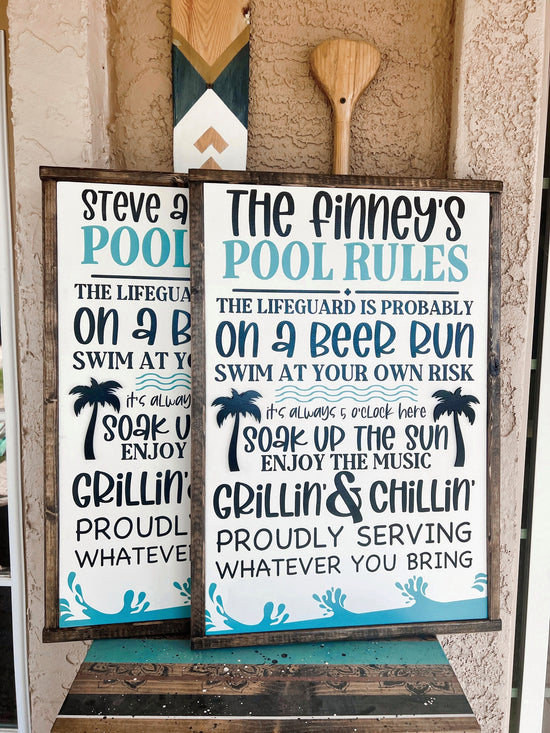 STEVE
POOL
THE LIFEGUA
ON A B
SWIM AT YO
it's alway
SOAK U
ENJOY
GRILLIN'
PROUDLY
WHATEVER
THE FINNEY'S
POOL RULES
THE LIFEGUARD IS PROBABLY
ON A BEER RUN
SWIM AT YOUR OWN RISK
it's always 5 o'clock here
SOAK UP THE SUN
ENJOY THE MUSIC
GRILLIN' & CHILLIN'
PROUDLY SERVING
WHATEVER YOU BRING